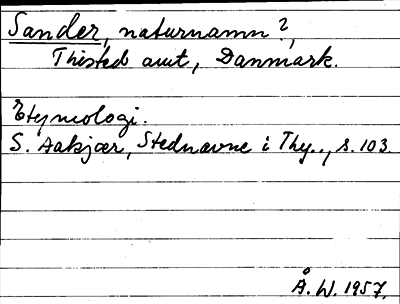 Sander, naturnamn?,
Thisted amt, Danmark.
Etymologi.
S. Aakjær, Stednavne i Thy.., s. 103.
Å. W. 1957.